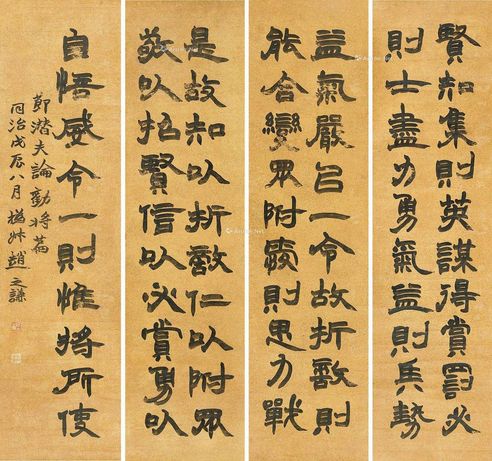 賢知集則英謀得賞罰必
則士盡力勇氣益則兵勢
益氣嚴㠯一令故折敵則
能合變眾附愛則思力戰
是故知以折敵仁以附眾
敬以招賢信以必賞勇以
自倍威令一則惟將所使
節潛夫論勸將篇
同治戊辰八月撝叔趙之謙